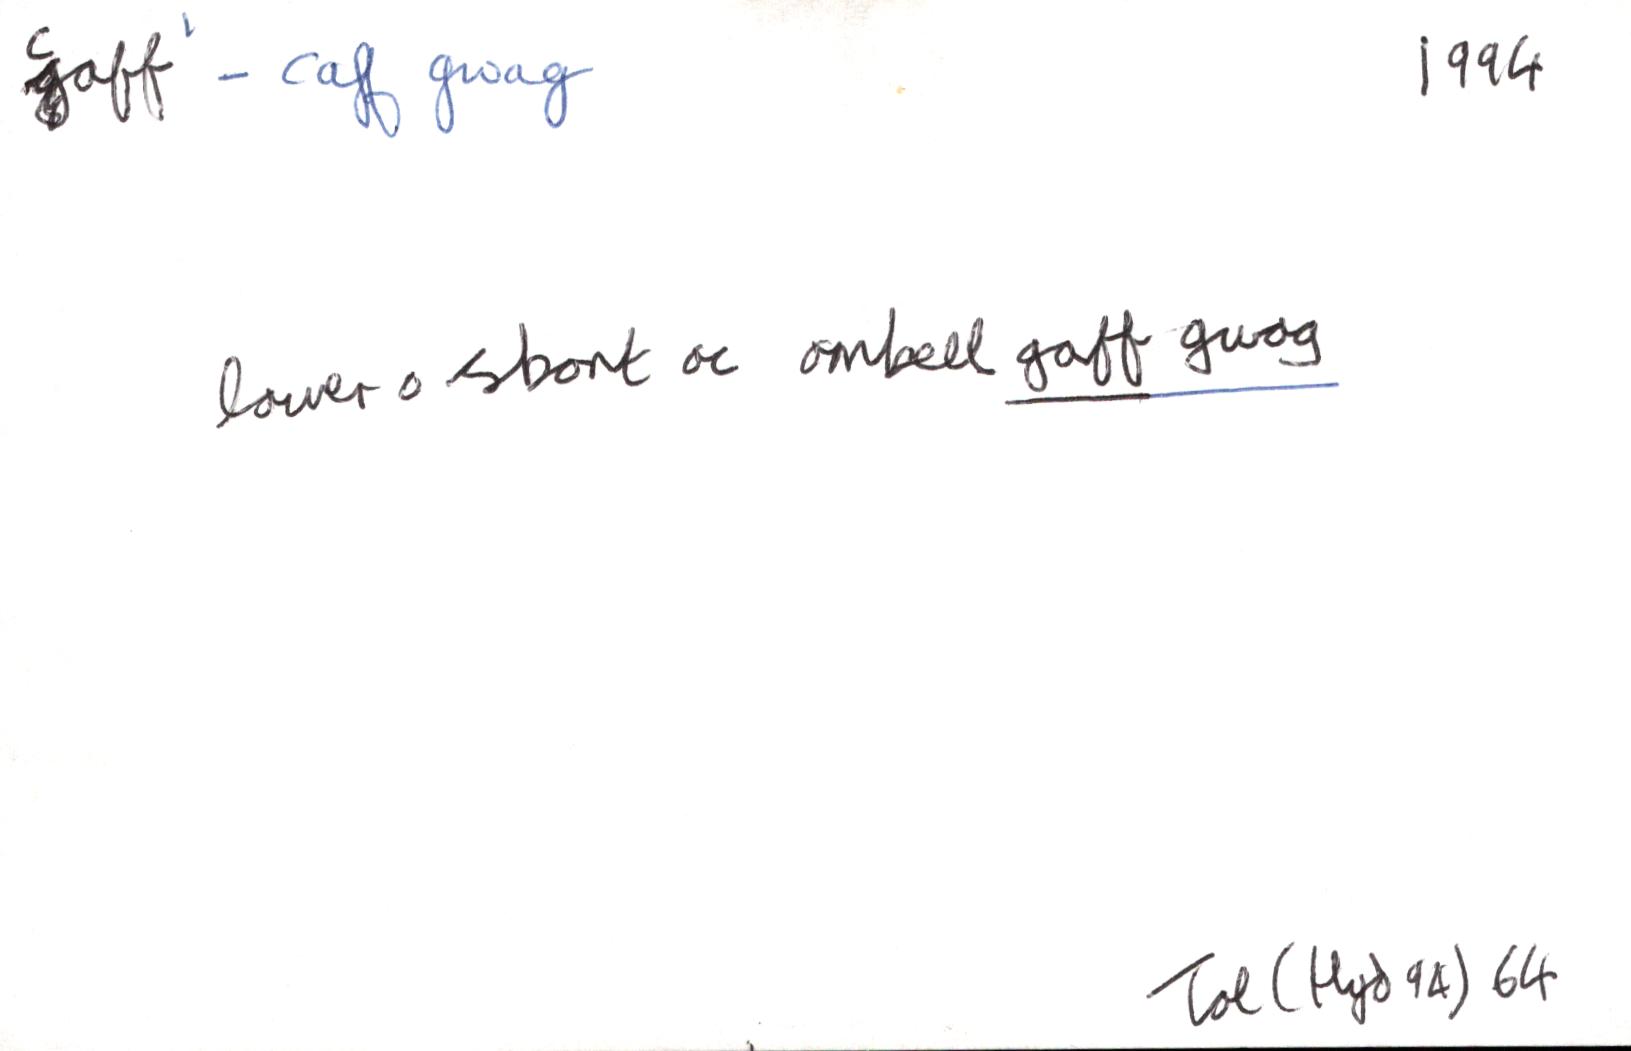 caff¹ - caff gwag 1994
lower o sbort ac ambell gaff gwag
Tol (Hyd 94) 64